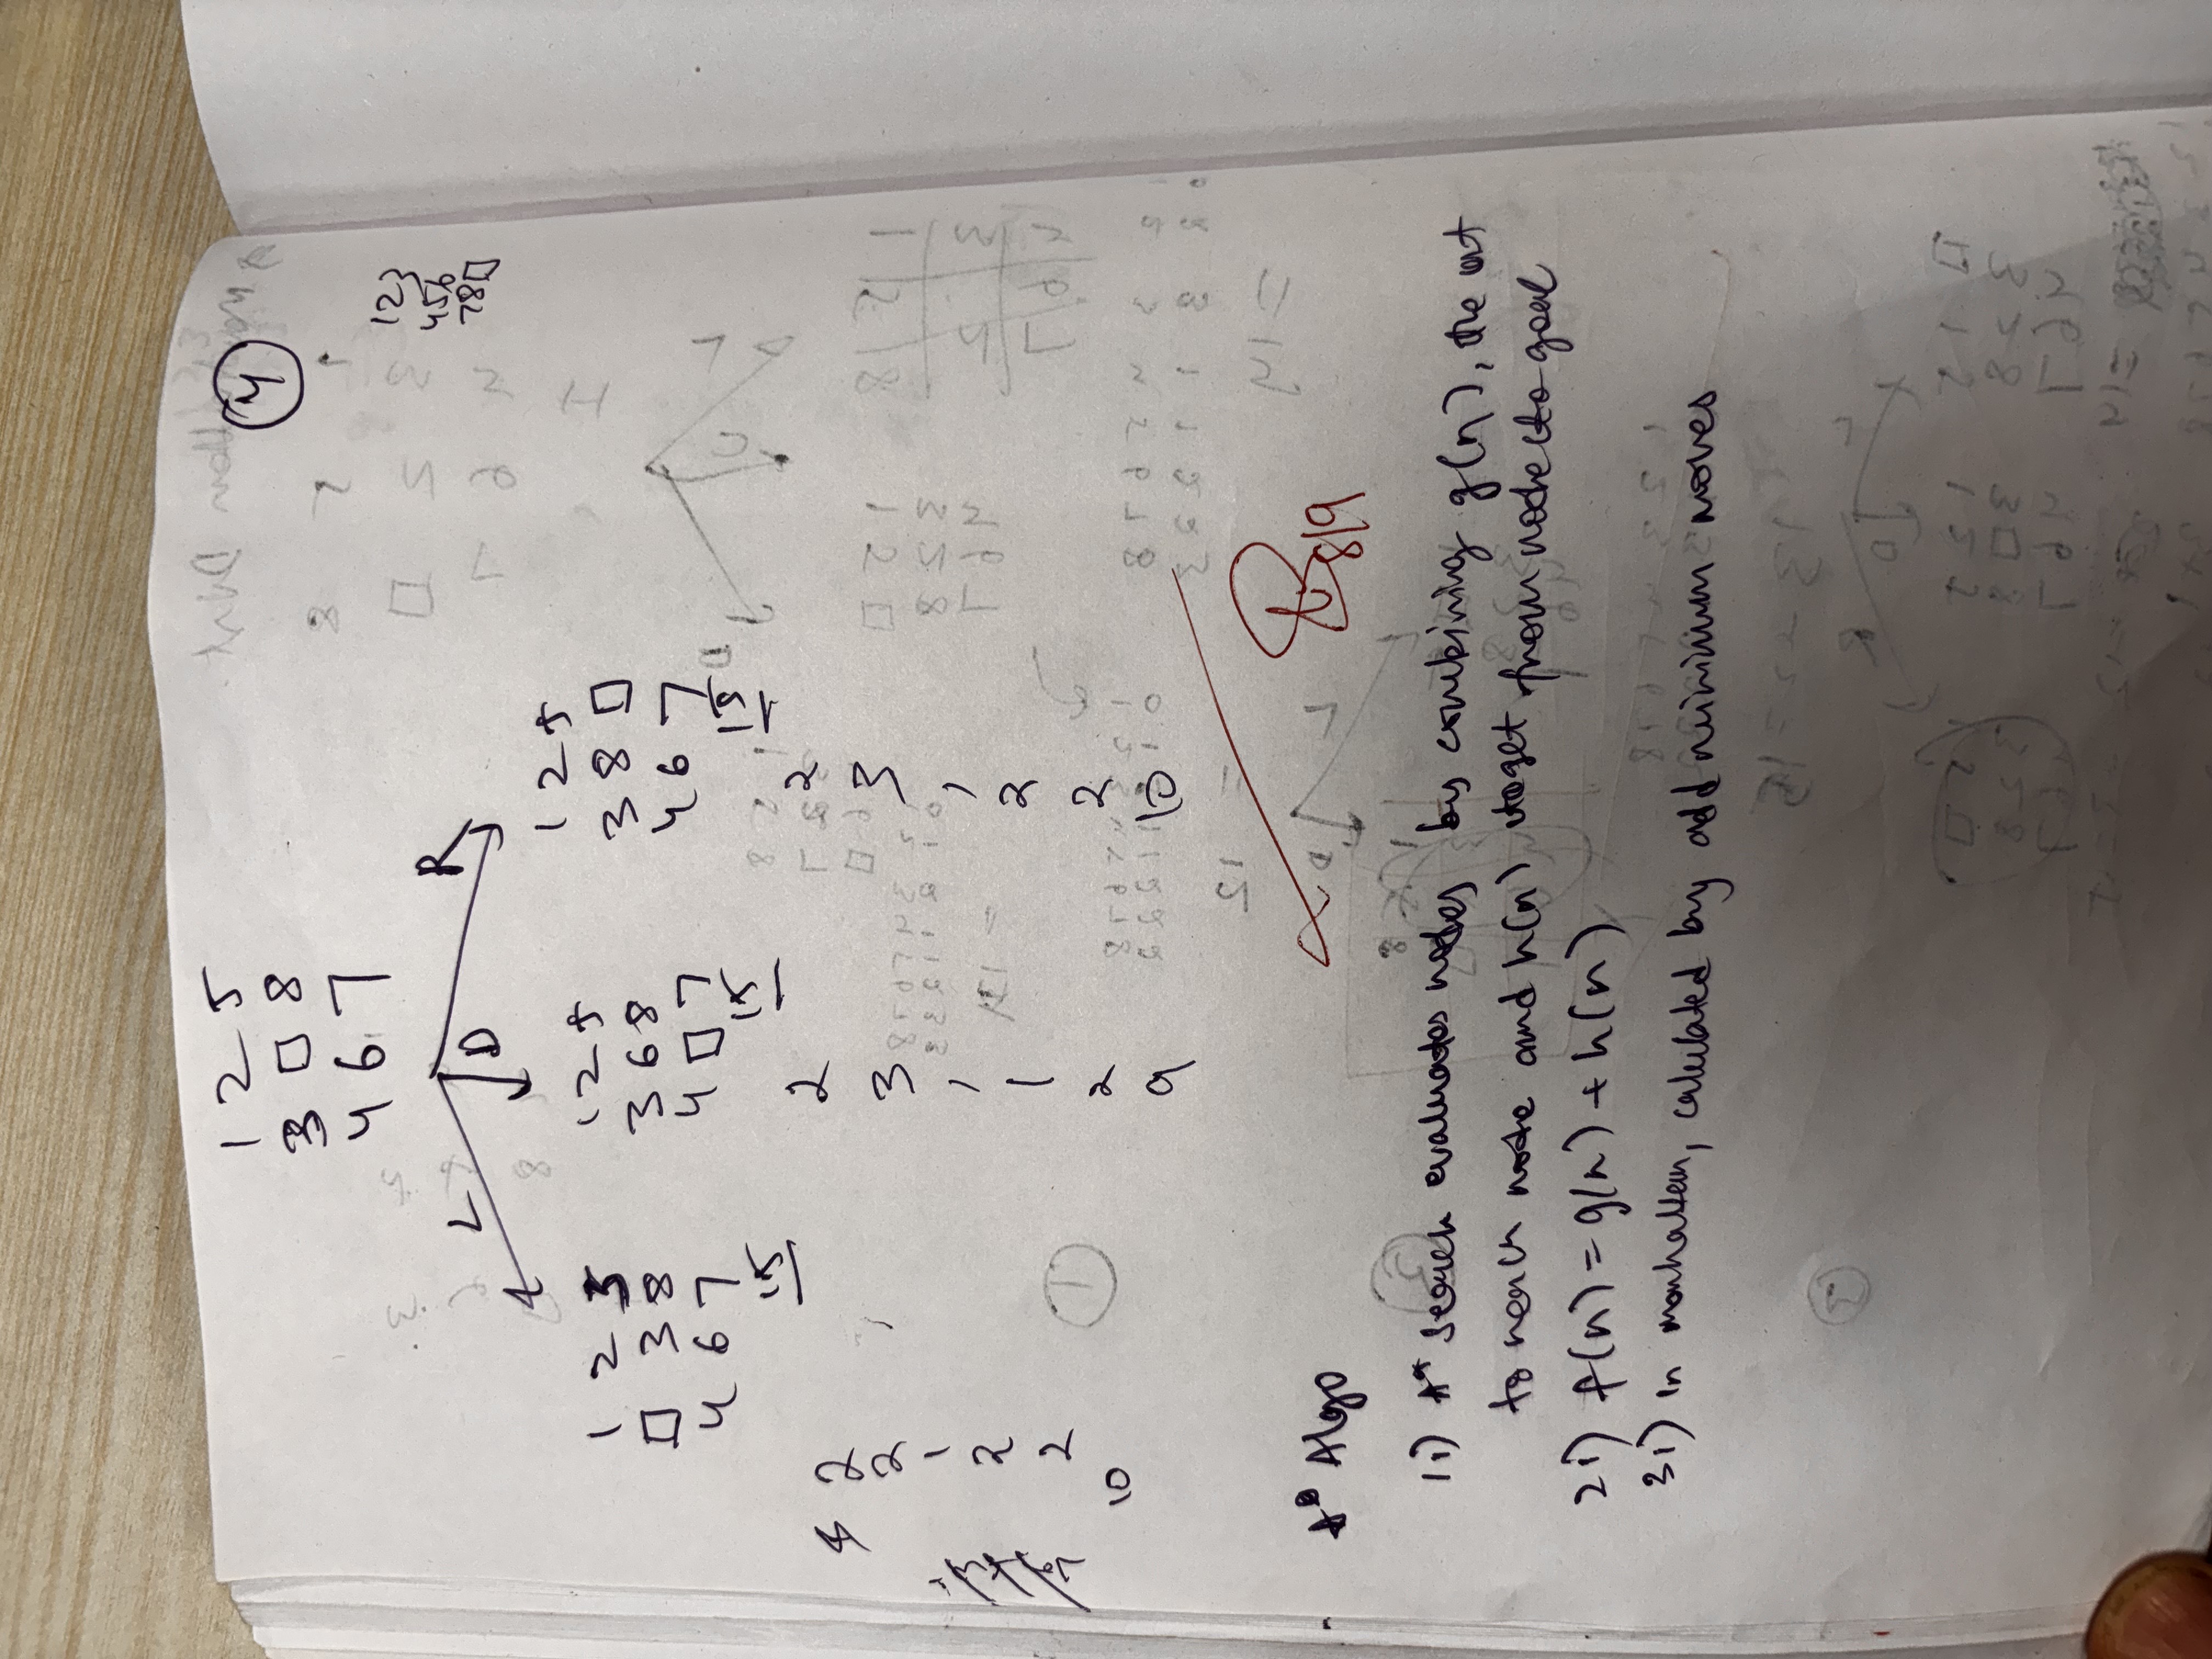 4
1 2 5
3 □ 8
4 6 7
1 2 3
4 5 6
7 8 □
L D R
1 2 5
□ 3 8
4 6 7
15
1 2 5
3 6 8
4 □ 7
15
1 2 5
3 8 □
4 6 7
15
2 2 2
2 3 3
1 1 1
2 1 2
2 2 2
10 9 10
8/9
A* Algo
1.) A* search evaluates nodes by combining g(n), the
to reach node and h(n) to get from node to goal
2.) f(n) = g(n) + h(n)
3.) In manhattan, calulated by add minimum moves